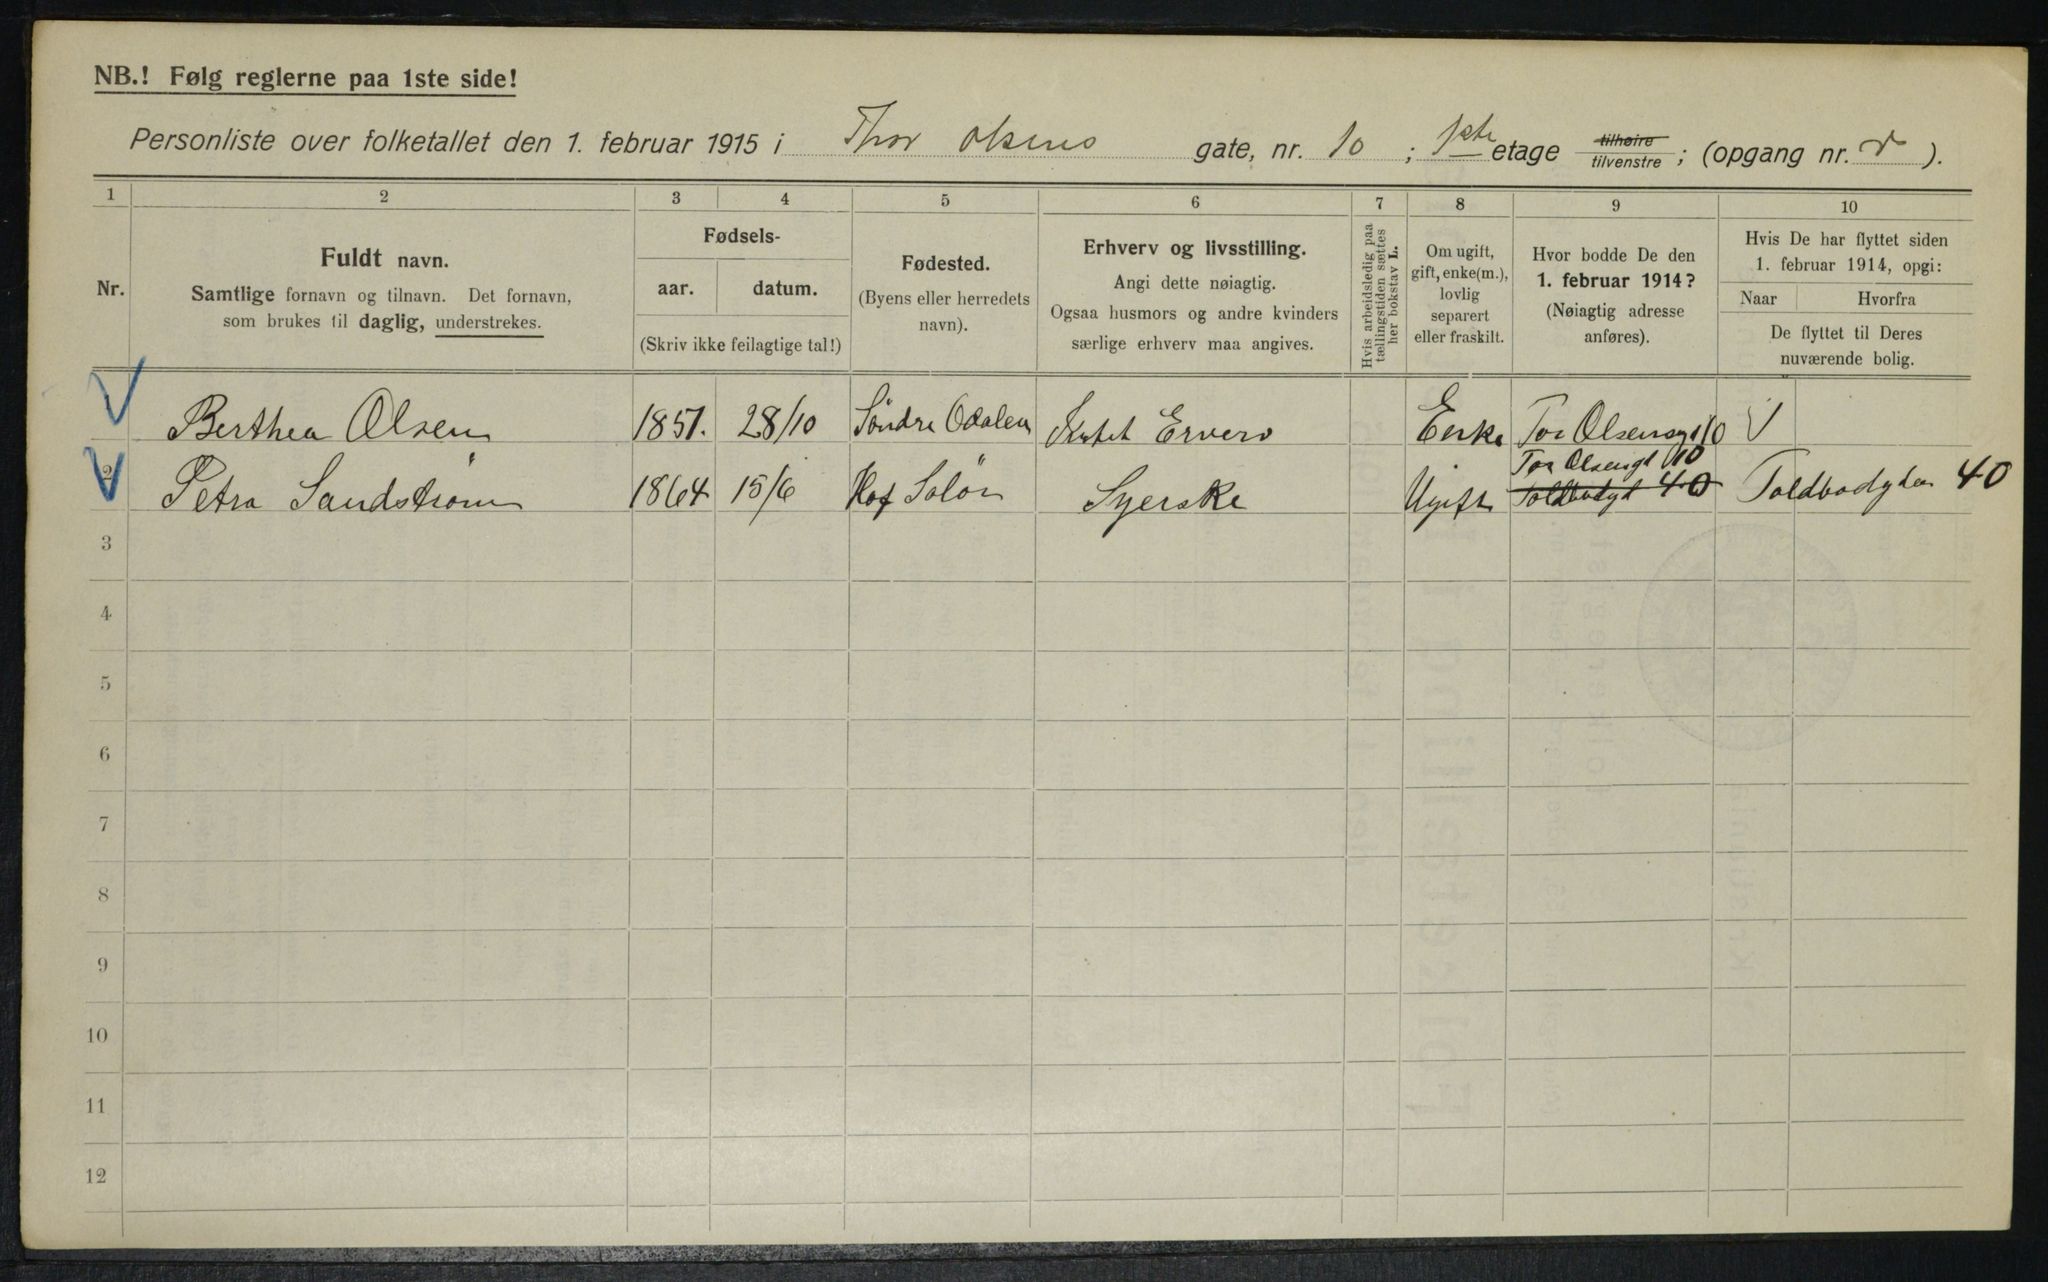 NB.! Følg reglerne paa 1ste side!
Personliste over folketallet den 1. februar 1915 i Thor Olsens gate, nr. 10 ; 1ste etage tilhøire tilvenstre ; (opgang nr. ).
1 2 3 4 5 6 7 8 9 10
Nr.
Fuldt navn.
Samtlige fornavn og tilnavn. Det fornavn,
som brukes til daglig, understrekes.
Fødsels-
aar. datum.
(Skriv ikke feilagtige tal!)
Fødested.
(Byens eller herredets
navn).
Erhverv og livsstilling.
Angi dette nøiagtig.
Ogsaa husmors og andre kvinders
særlige erhverv maa angives.
Hvis arbeidsledig paa
tællingstiden sættes
her bokstav L.
Om ugift,
gift, enke(m.),
lovlig
separert
eller fraskilt.
Hvor bodde De den
1. februar 1914?
(Nøiagtig adresse
anføres).
Hvis De har flyttet siden
1. februar 1914, opgi:
Naar Hvorfra
De flyttet til Deres
nuværende bolig.
Berthea Olsen 1851. 28/10 Söndre Odalen Intet Erverv Enke Tor Olsensgt 10
2 Petra Sandström 1864 15/6 Hof Solör Syerske Ugift Tor Olsengt 10 Toldbodgt 40 Toldbodgten 40
3
4
5
6
7
8
9
10
11
12